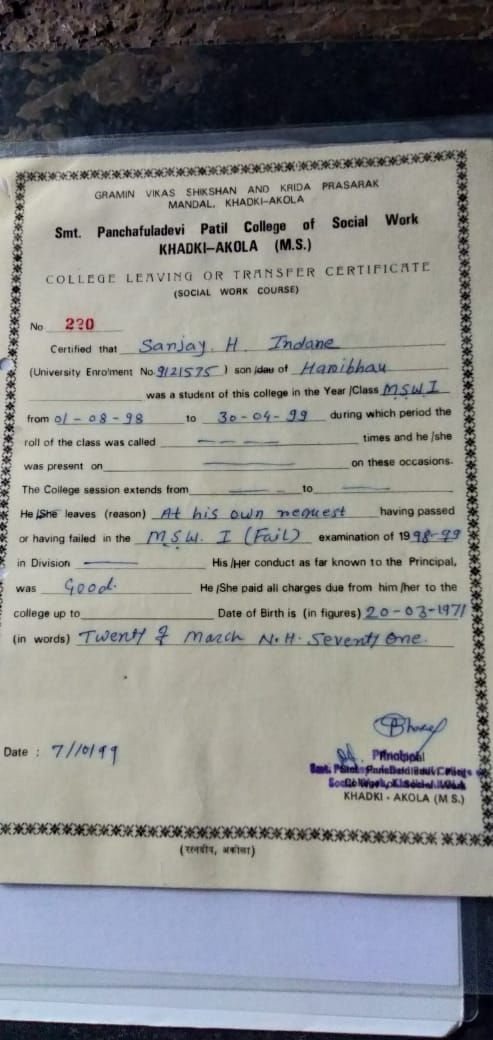 GRAMIN VIKAS SHIKSHAN AND KRIDA PRASARAK
MANDAL, KHADKI-AKOLA
Smt. Panchafuladevi Patil College of Social Work
KHADKI-AKOLA (M.S.)
COLLEGE LEAVING OR TRANSFER CERTIFICATE
(SOCIAL WORK COURSE)
No 220
Certified that Sanjay. H. Indane
(University Enrolment No. 9121575) son/dau of Hanibhau
was a student of this college in the Year/Class M.S.W I
from 01-08-98 to 30-04-99 during which period the
roll of the class was called times and he/she
was present on on these occasions.
The College session extends from to
He/She leaves (reason) At his own request having passed
or having failed in the M.S.W. I (Fail) examination of 1998-99
in Division His/Her conduct as far known to the Principal,
was Good. He/She paid all charges due from him/her to the
college up to Date of Birth is (in figures) 20-03-1971
(in words) Twenty of March N.H. Seventy One.
Date : 7/10/99
Principal
KHADKI - AKOLA (M S.)
(रत्नदीप, अकोला)